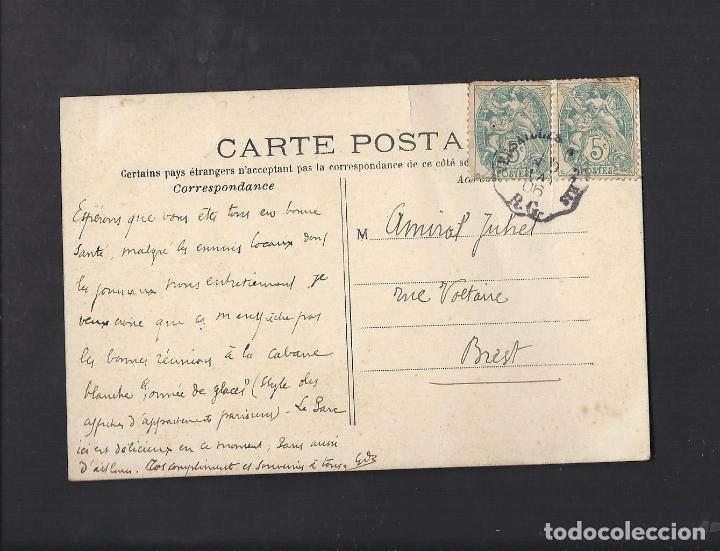 CARTE POSTA
Certains pays étrangers n'acceptant pas la correspondance de ce côté se
Correspondance
5c
POSTES
5c
POSTES
VERSAILLES
06
R.G.
Espérons que vous êtes tous en bonne
Santé, malgré les ennuis locaux dont
les journaux nous entretiennent, je
veux croire que ça n'empêche pas
les bonnes réunions à la cabane
blanche "ornée de glaces" (Style des
affiches d'appartements parisiens) - Le Parc
ici est délicieux en ce moment, Paris aussi
d'ailleurs. Tos compliments et Souvenirs à tous.
M Amiral Juhel
rue Voltaire
Brest
todocoleccion.net